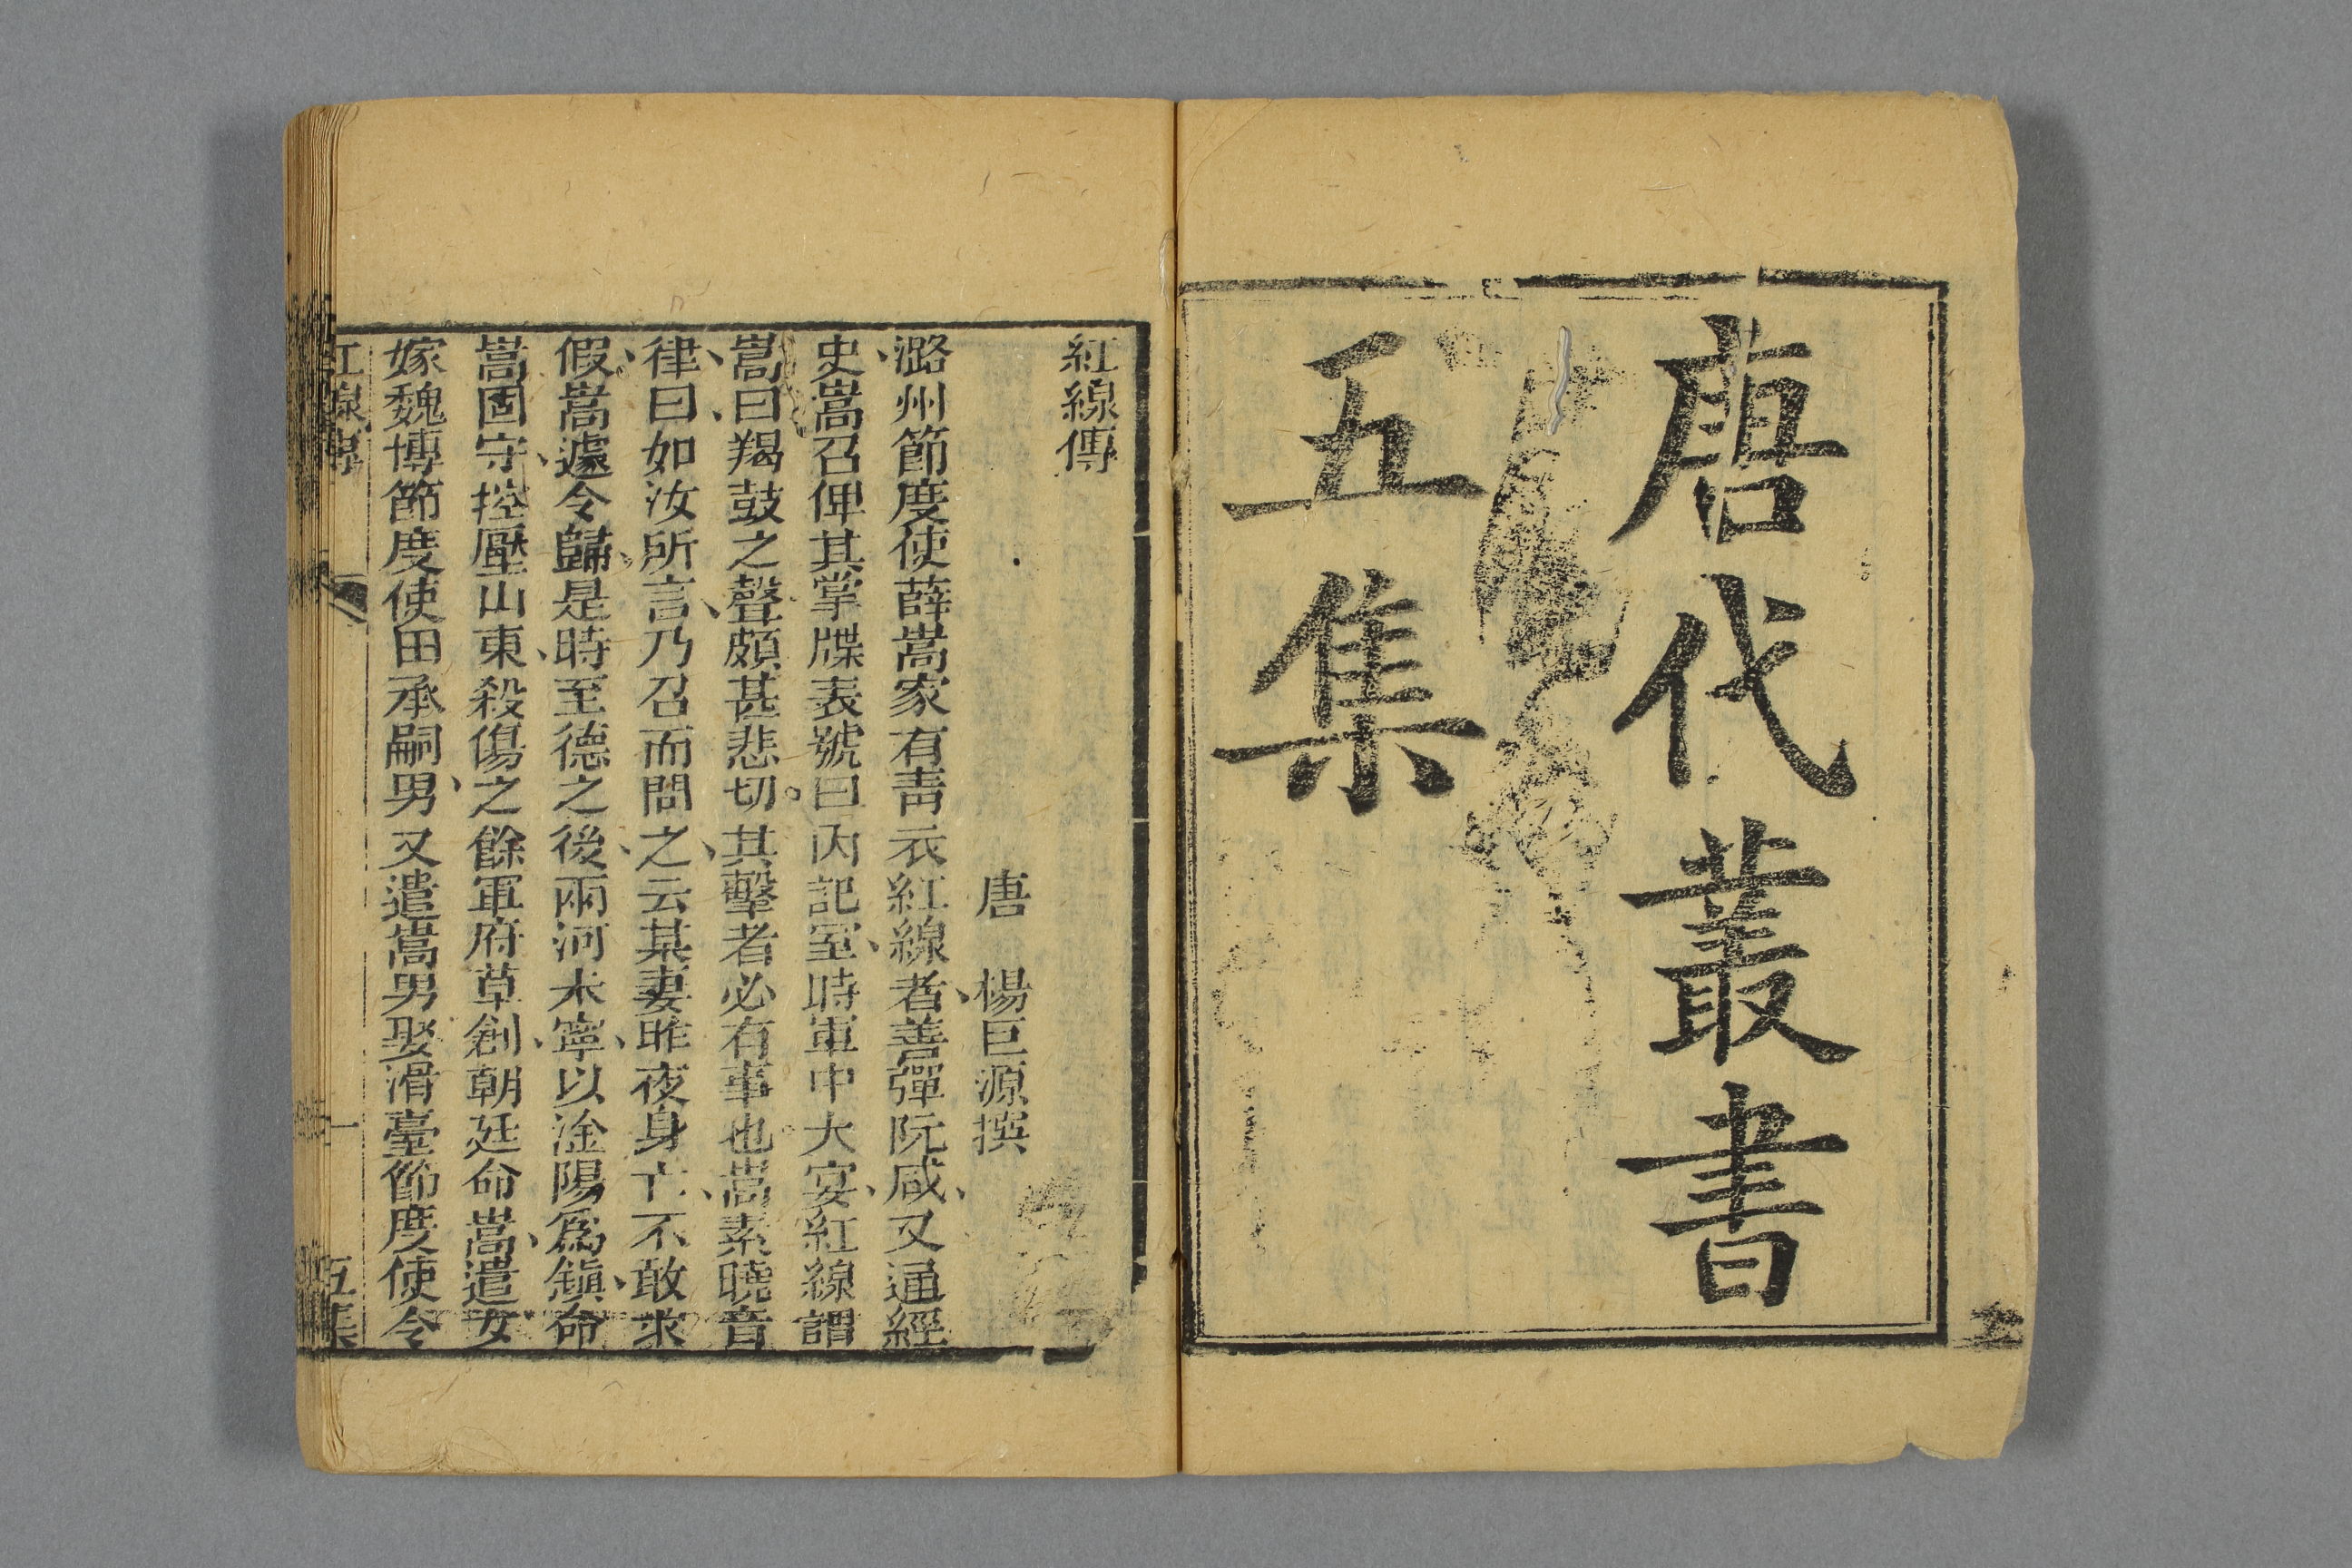 唐代叢書
五集
紅線傳
唐　楊巨源撰
潞州節度使薛嵩家有靑衣紅線者、善彈阮咸、又通經
史、嵩召俾其掌牒表號曰內記室、時軍中大宴、紅線謂
嵩曰羯鼓之聲頗甚悲切。其擊者必有事也。嵩素曉音
律、曰、如汝所言、乃召而問之、云某妻昨夜身亡、不敢求
假、嵩遽令歸、是時至德之後、兩河未寧、以淦陽爲鎭、命
嵩固守、控壓山東、殺傷之餘軍府草創、朝廷命嵩、遣女
嫁魏博節度使田承嗣男、又遣嵩男娶滑臺節度使令
紅線傳　一　五集